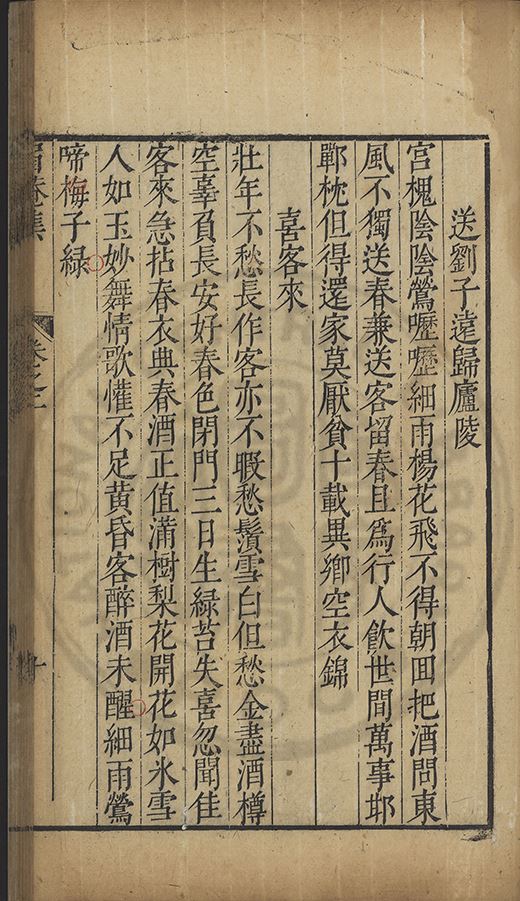 送劉子遠歸廬陵
宮槐陰陰鶯嚦嚦細雨楊花飛不得朝囬把酒問東
風不獨送春兼送客留春且爲行人飮世間萬事邯
鄲枕但得還家莫厭貧十載異鄉空衣錦
喜客來
壯年不愁長作客亦不暇愁鬢雪白但愁金盡酒樽
空辜負長安好春色閉門三日生綠苔失喜忽聞佳
客來急拈春衣典春酒正值滿樹梨花開花如氷雪
人如玉妙舞情歌懽不足黃昏客醉酒未醒細雨鶯
啼梅子綠
卷之三
十